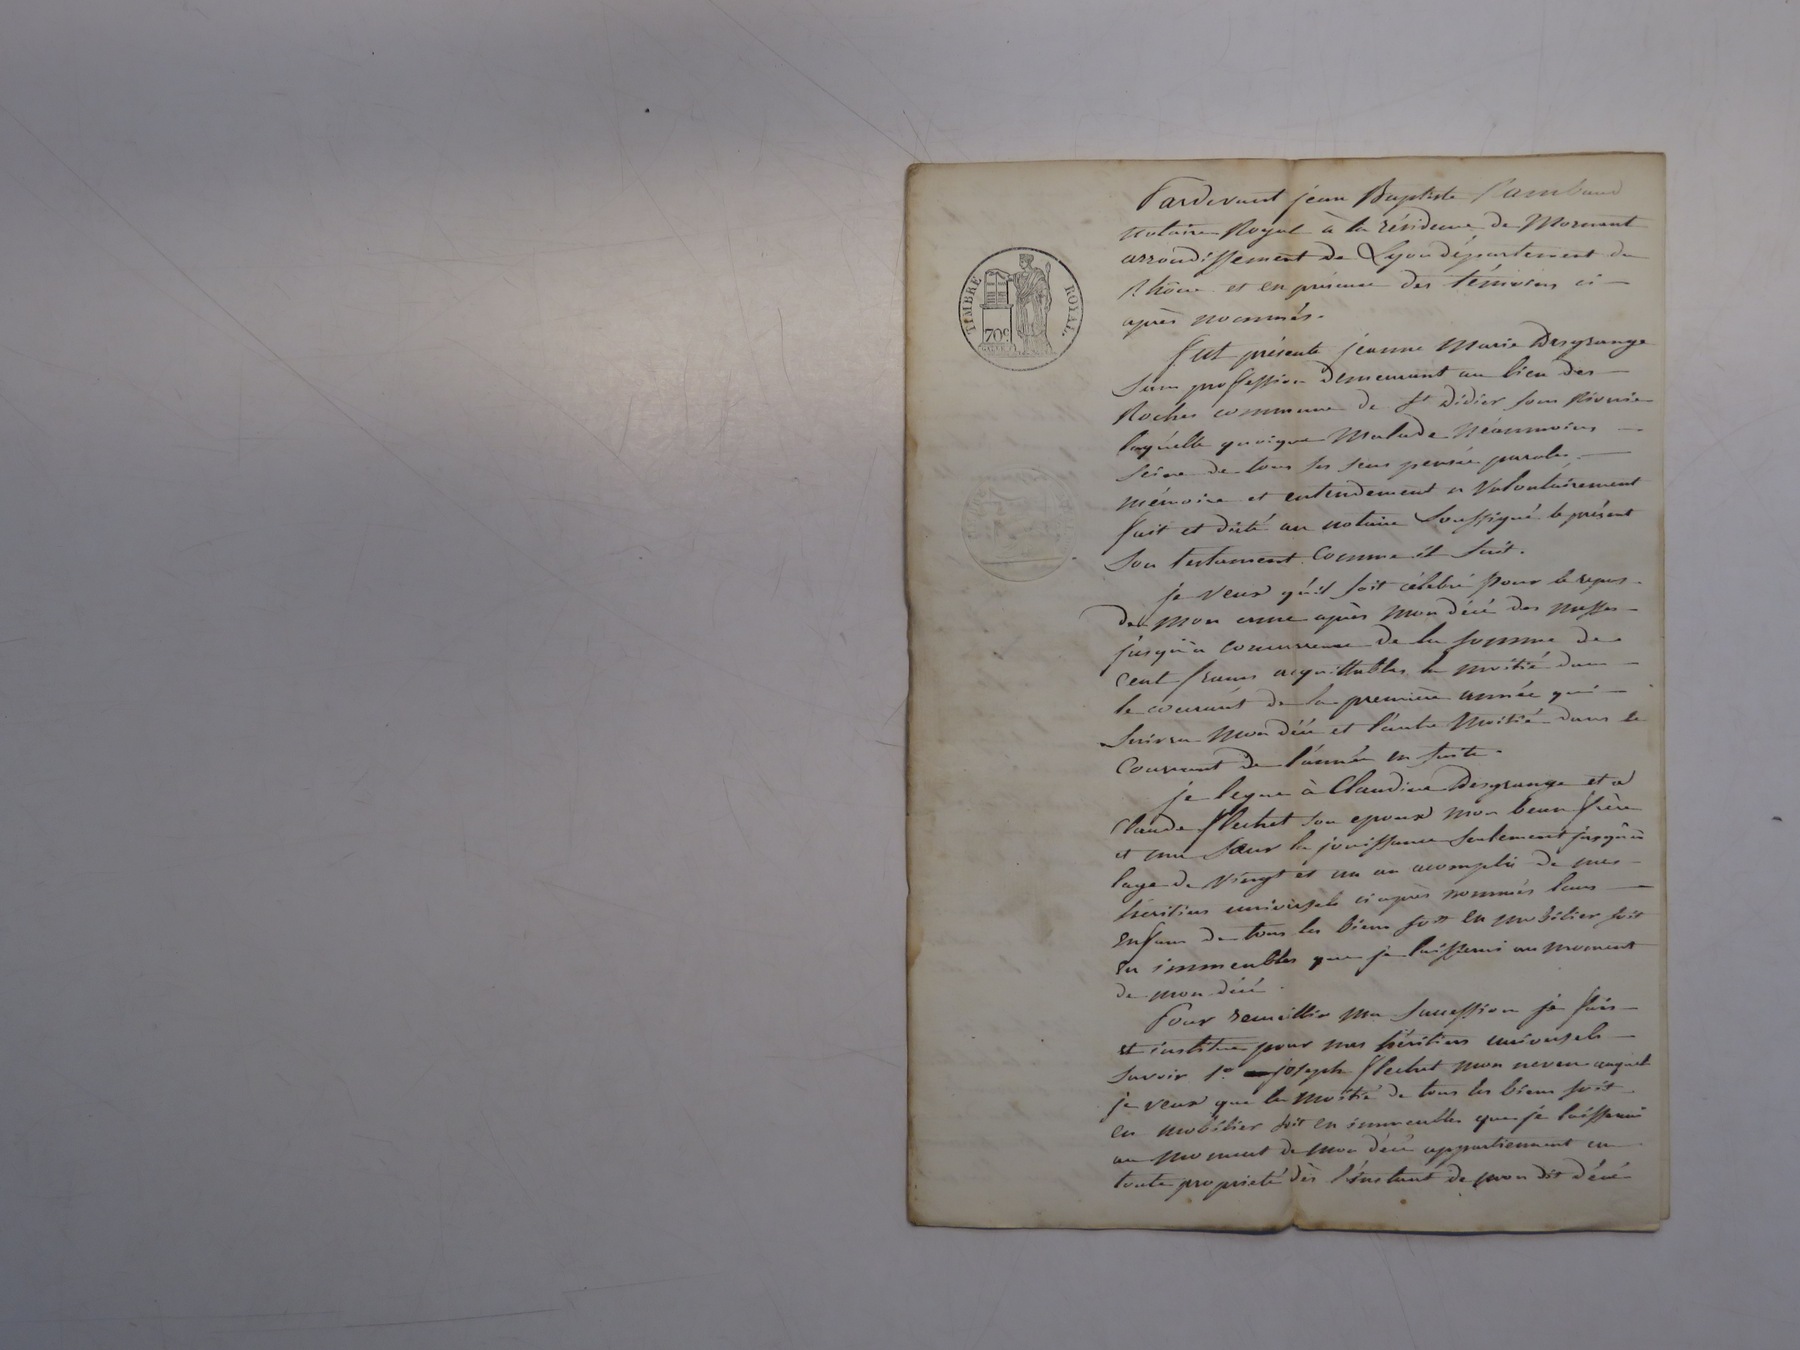 TIMBRE ROYAL
70c
Pardevant jean Baptiste
notaire Royal à la résidence de Mornant
arrondissement de Lyon département du
Rhône et en présence des témoins ci
après nommés.
fut présente jeanne Marie Desgrange
sans profession demeurant au lieu des
Roches commune de St Didier sous Riverie
laquelle quoique Malade néanmoins
seine de tous ses sens pensée parole
mémoire et entendement a Volontairement
fait et dicté au notaire soussigné le présent
son testament comme il suit.
je veux qu'il soit célébré pour le repos
de mon ame après mon décé des messes
jusqu'a concurrence de la somme de
cent francs acquittables la moitié dans
le courant de la première année qui
suivra mon décé et l'autre moitié dans le
courant de l'année en suite.
je legue à Claudine Desgrange et a
Claude flechet son epoux mon beau frère
et ma sœur la jouissance seulement jusqu'a
lage de vingt et un an acomplis de mes
héritiers universels ci après nommés leurs
enfans de tous les biens soit en mobilier soit
en immeubles que je laisserai au moment
de mon décé.
Pour recueillir ma succession je fais
et institue pour mes héritiers universels
savoir 1º joseph flechet mon neveu auquel
je veux que la moitié de tous les biens soit
en mobilier soit en immeubles que je laisserai
au moment de mon décé appartiennent en
toute proprieté dès l'instant de mon dit décé